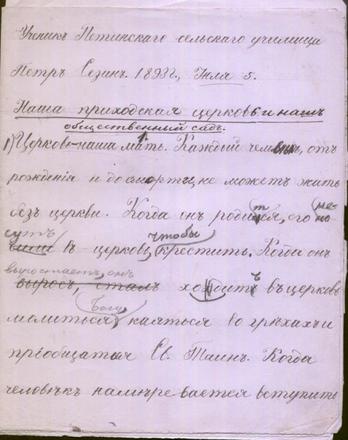 Ученикъ Петинскаго сельскаго училища
Петръ Сезинъ. 1893 г., 5.
Наша приходская церковь и нашъ
общественный садъ.
1) Церковь наша мать. Каждый человѣкъ, отъ
рожденія и до смерти, не можетъ жить
безъ церкви. Когда онъ родится, его не-
сутъ
въ церковь, чтобы крестить. Когда онъ
выростаетъ, онъ
выросъ, сталъ ходитъ въ церковь
Богу
молиться, каяться во грѣхахъ и
пріобщатся Св. Таинъ. Когда
человѣкъ намѣревается вступить